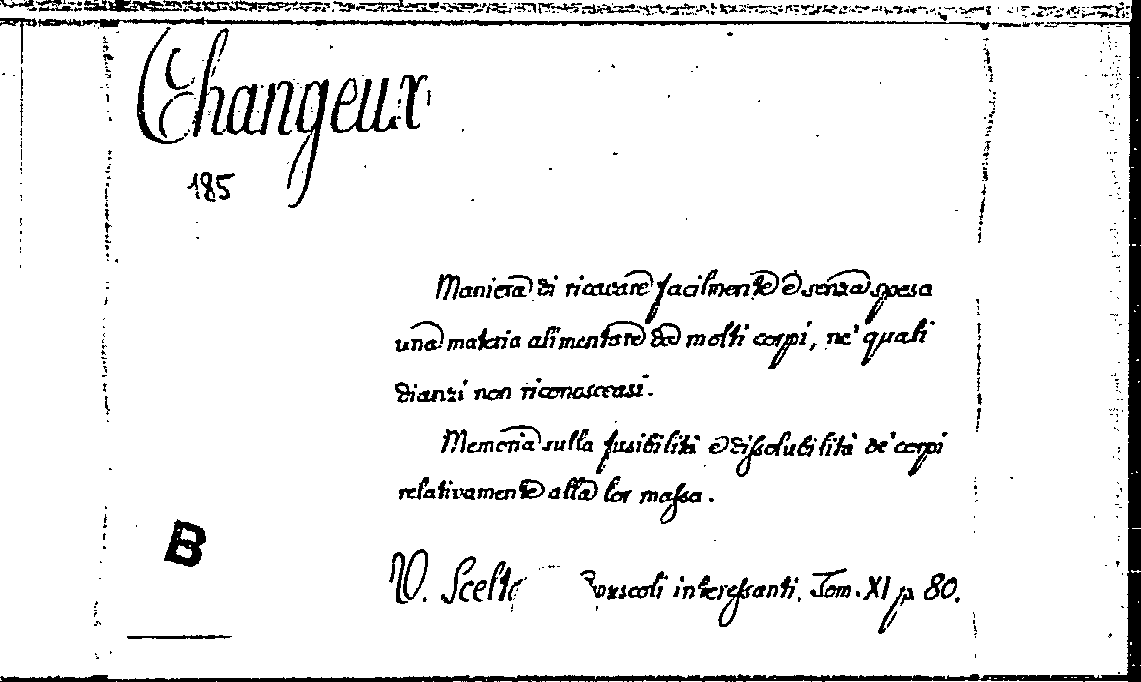 Changeux
185
Maniera di ricavare facilmente e senza spesa
una materia alimentare da molti corpi, ne' quali
dianzi non riconosceasi.
Memoria sulla fusibilità e dissolubilità de' corpi
relativamente alla lor massa.
B
V. Scelte opuscoli interessanti. Tom. XI p. 80.